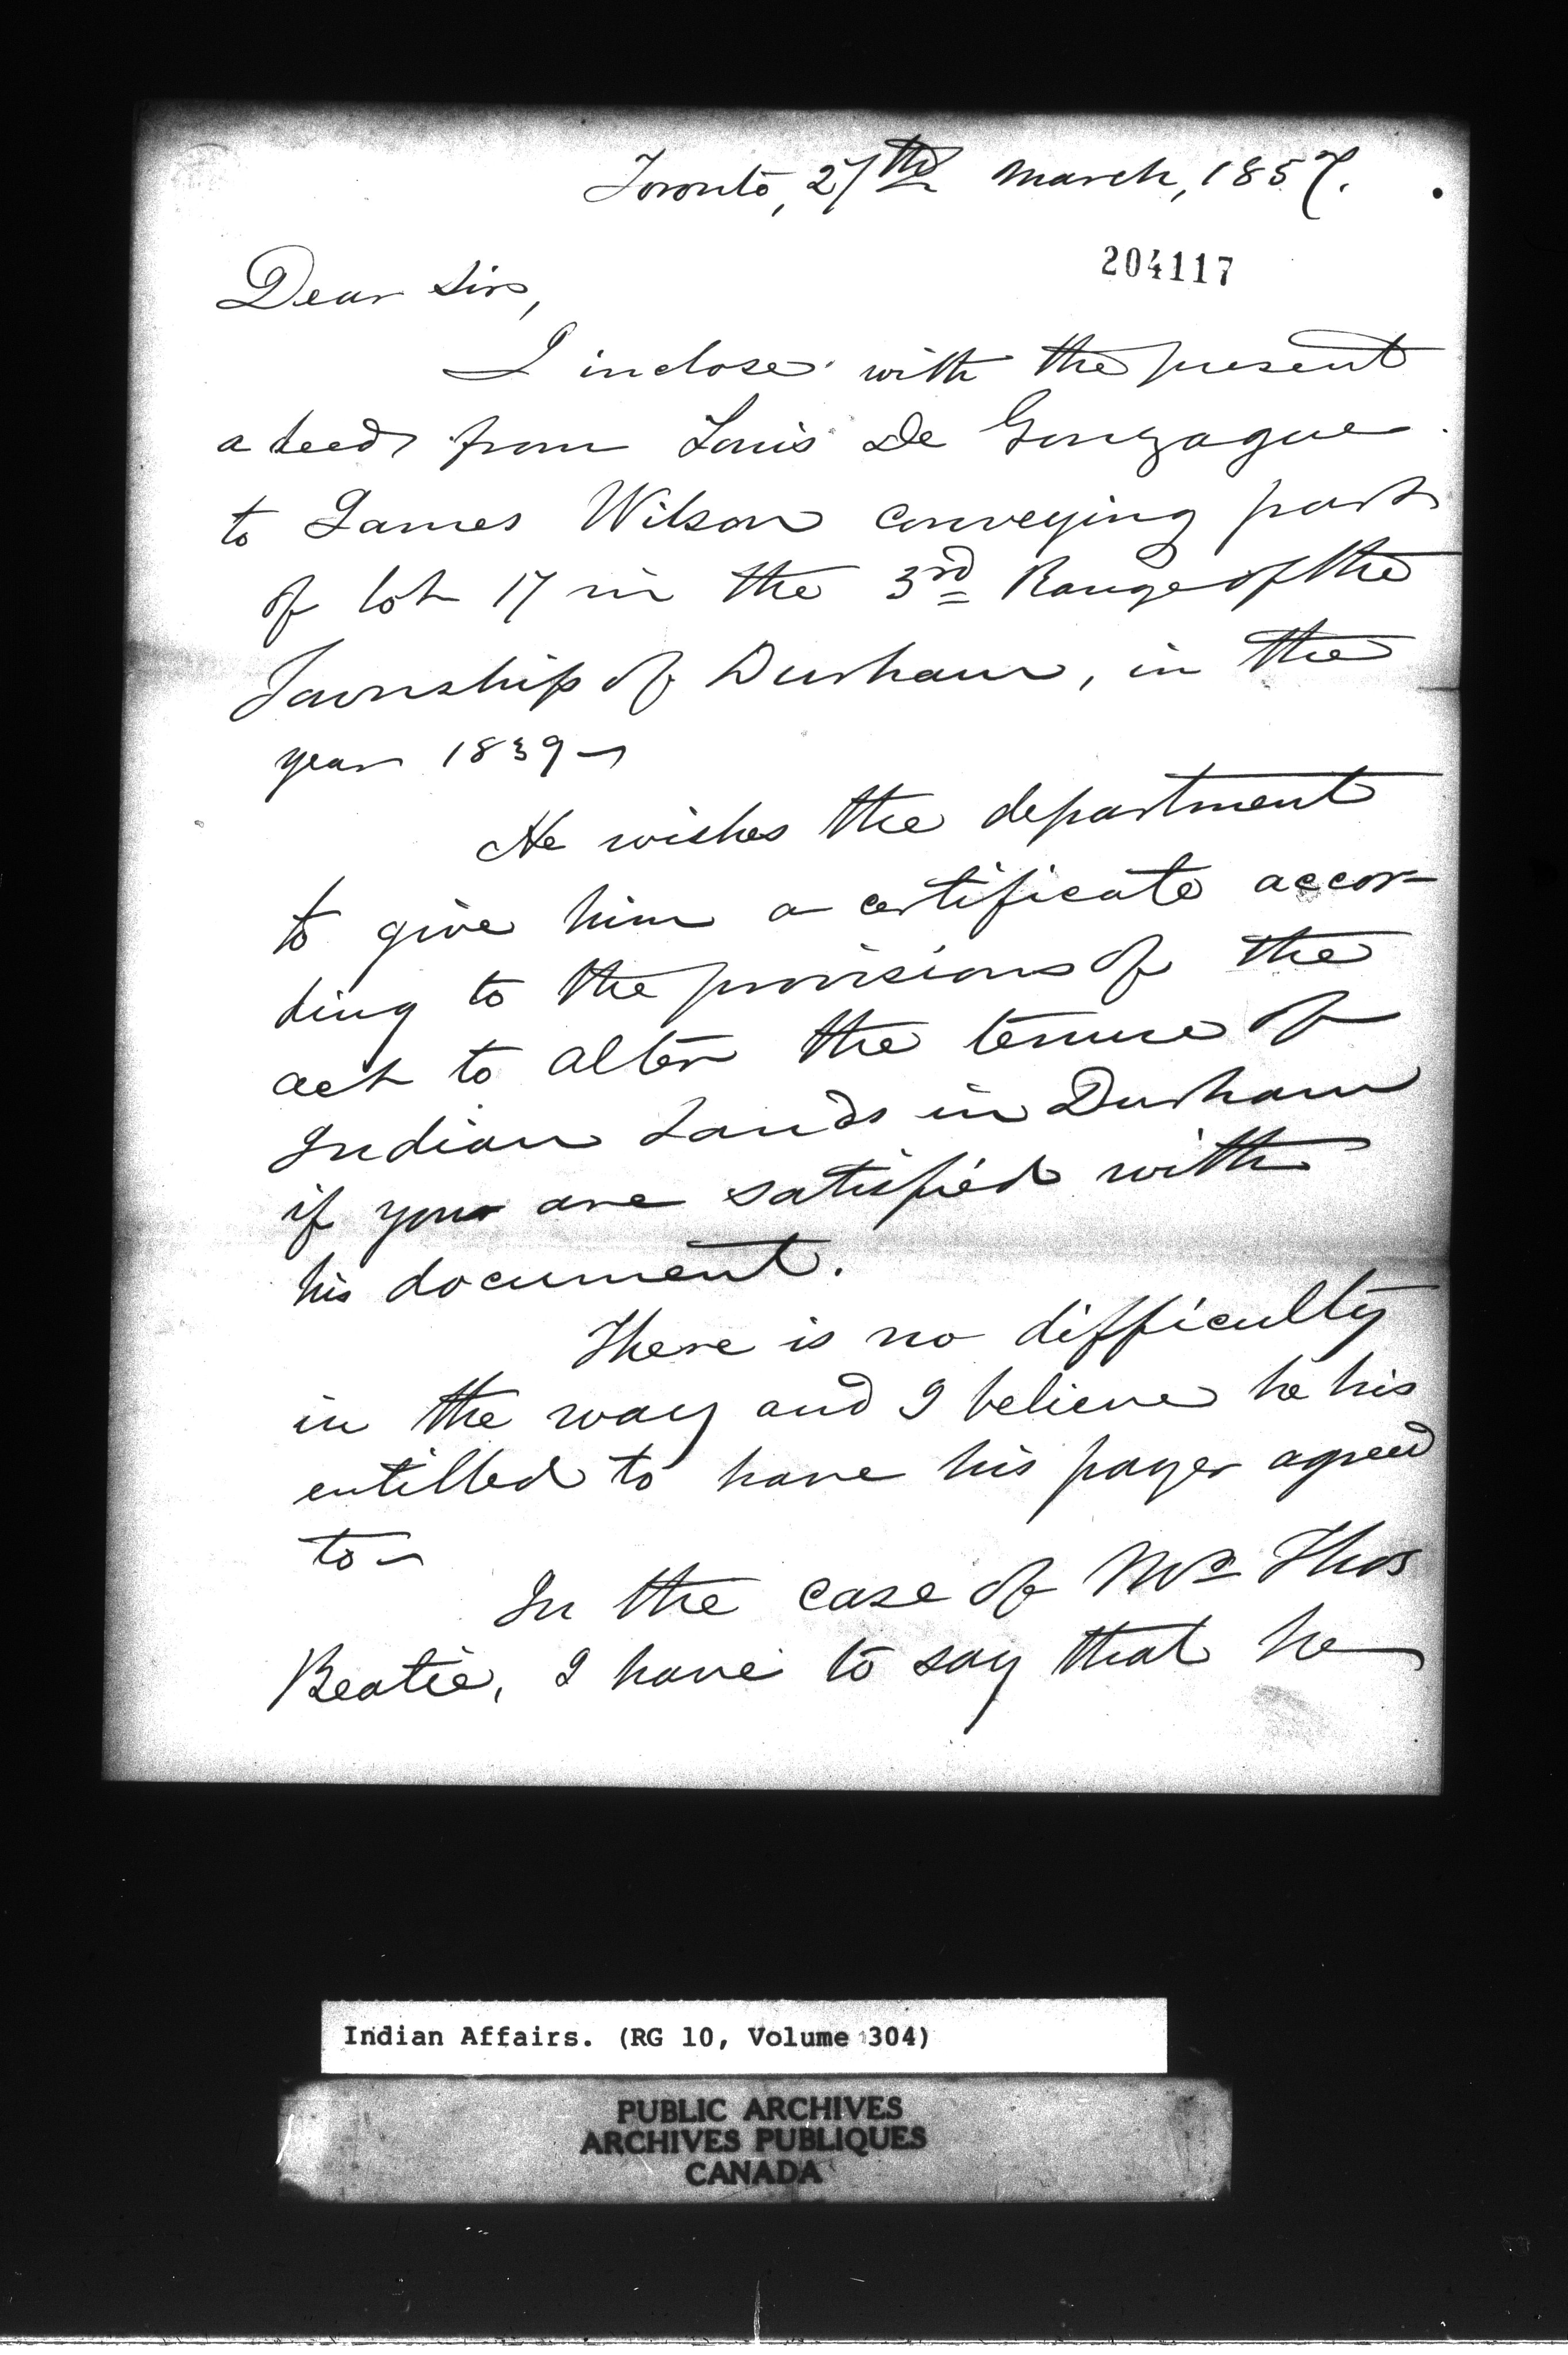 Toronto, 27th March, 1857.
204117
Dear Sir,
I inclose with the present
a deed from Louis De Gonzague
to James Wilson conveying part
of lot 17 in the 3rd Range of the
Township of Durham, in the
year 1839 -
He wishes the department
to give him a certificate accor-
ding to the provisions of the
act to alter the tenure of
Indian Lands in Durham
if you are satisfied with
his document.
There is no difficulty
in the way and I believe he his
entilled to have his payer agreed
to -
In the case of Mr Thos
Beatie, I have to say that he
Indian Affairs. (RG 10, Volume 304)
PUBLIC ARCHIVES
ARCHIVES PUBLIQUES
CANADA